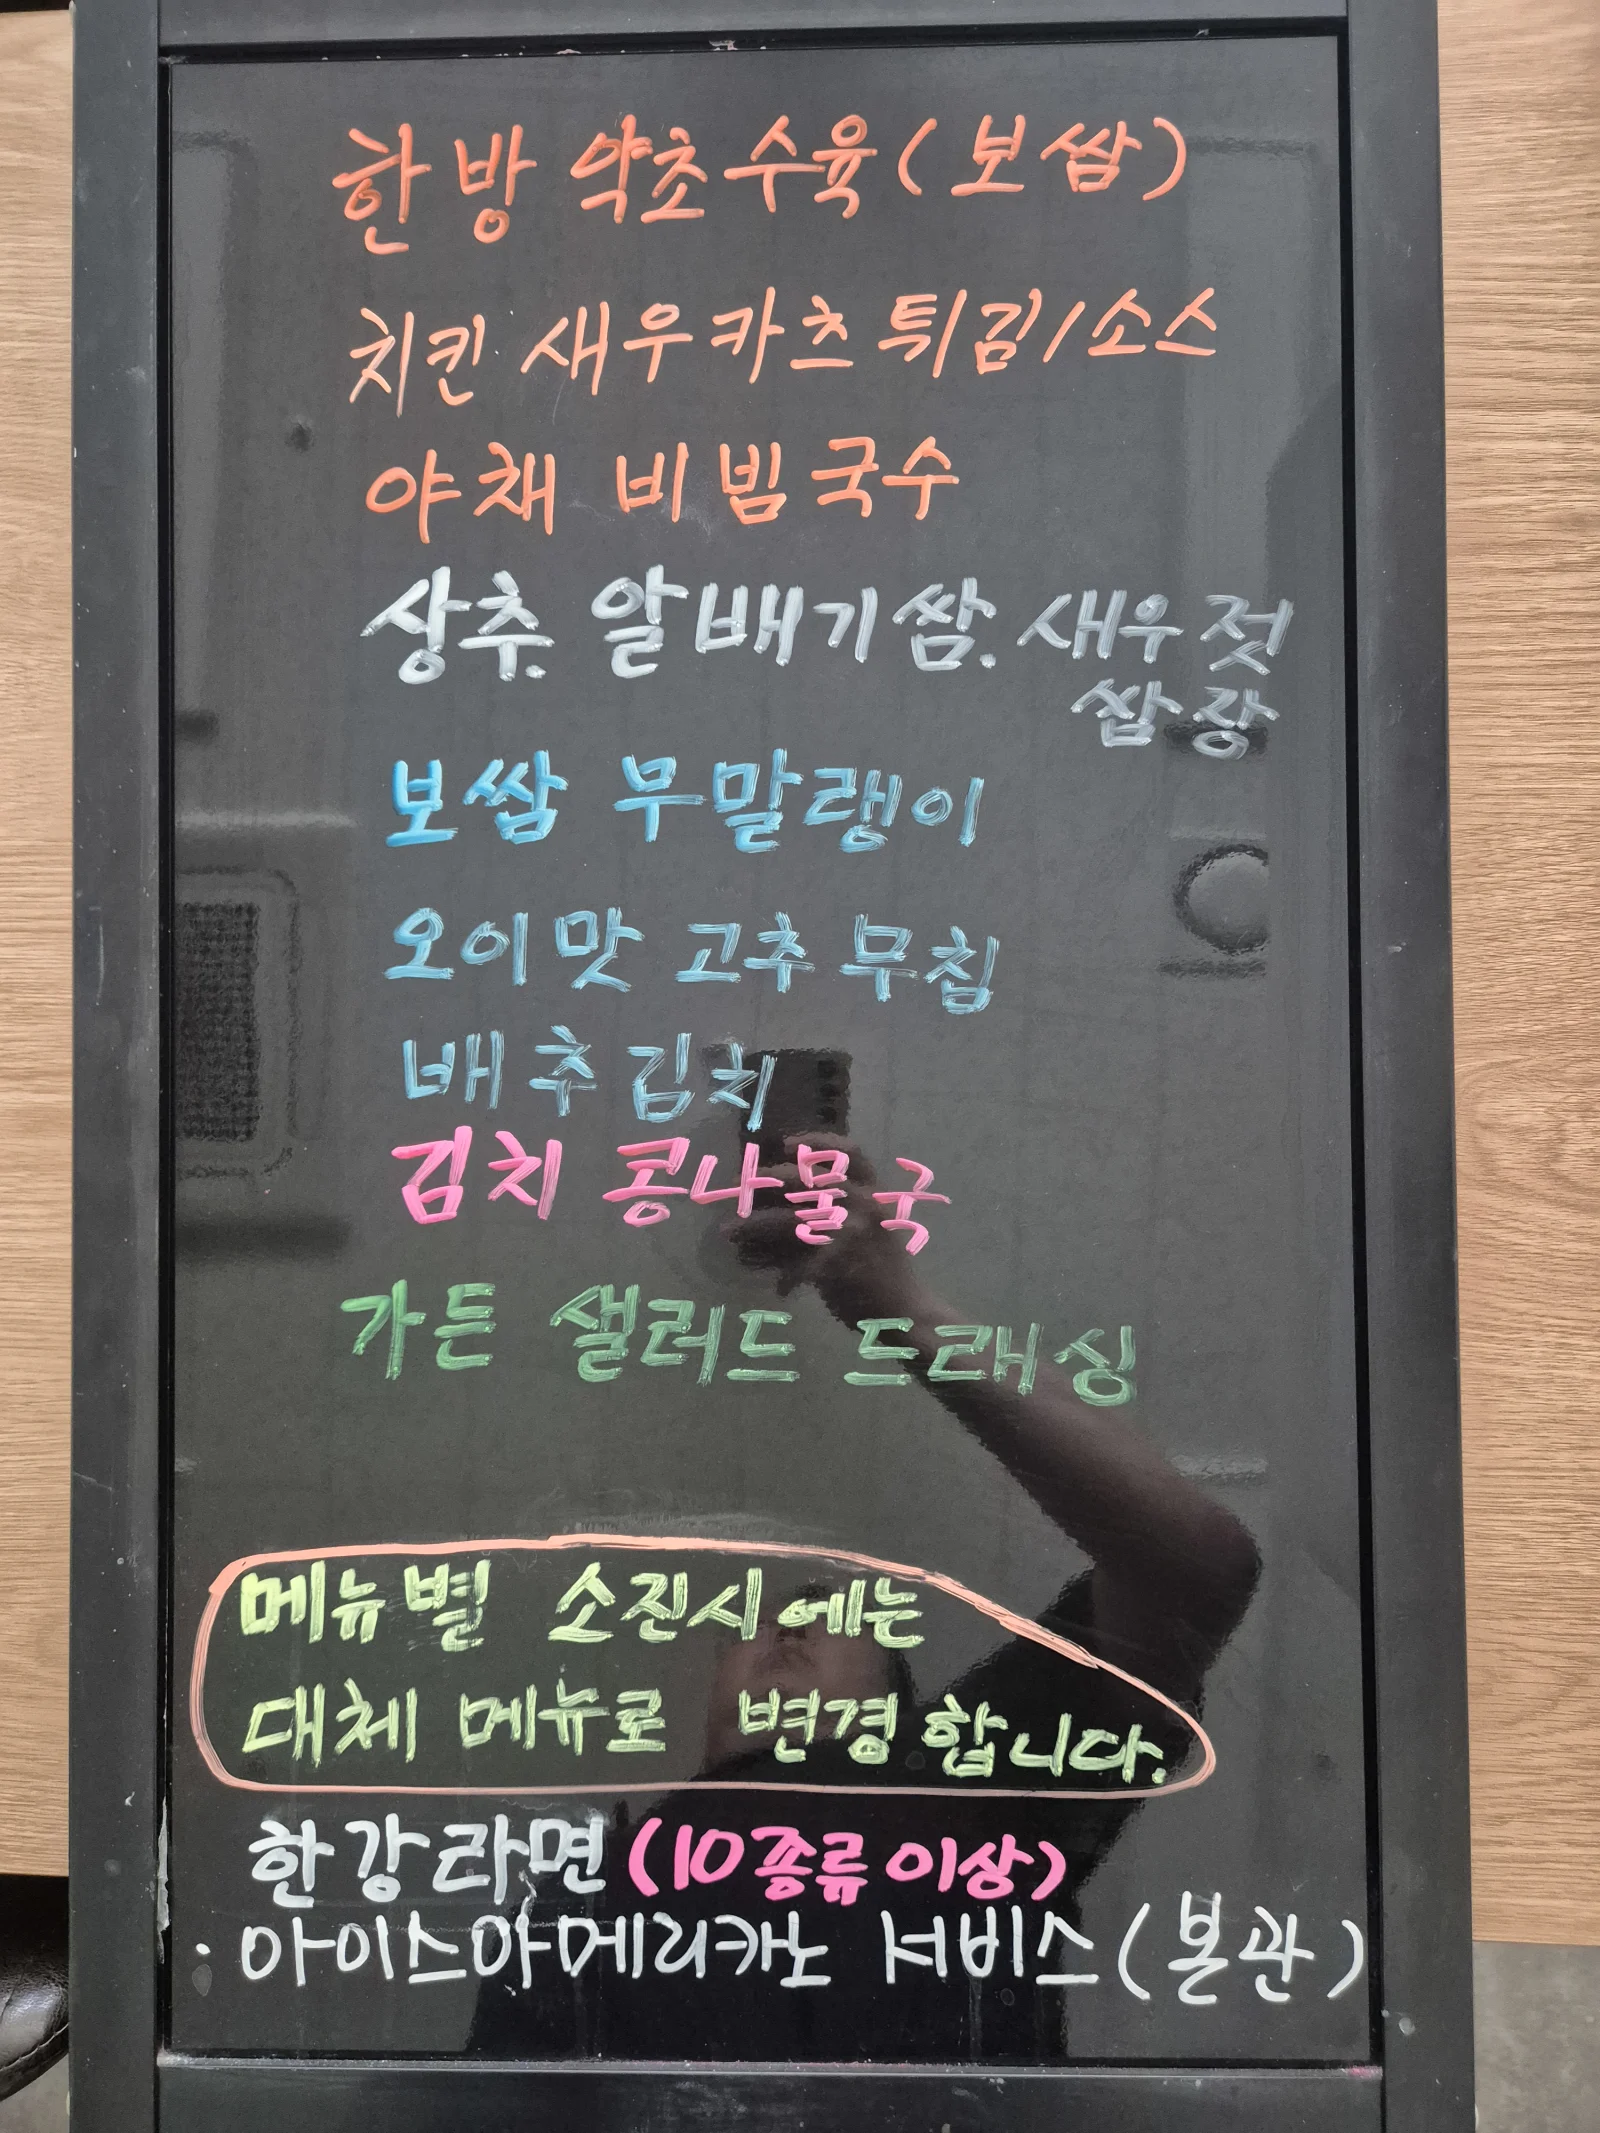 한방 약초수육(보쌈)
치킨 새우카츠튀김/소스
야채 비빔국수
상추. 알배기쌈. 새우젓
쌈장
보쌈 무말랭이
오이맛 고추무침
배추김치
김치 콩나물국
가든 샐러드 드래싱
메뉴별 소진시에는
대체 메뉴로 변경합니다.
한강라면(10종류이상)
·아이스아메리카노 서비스(본관)